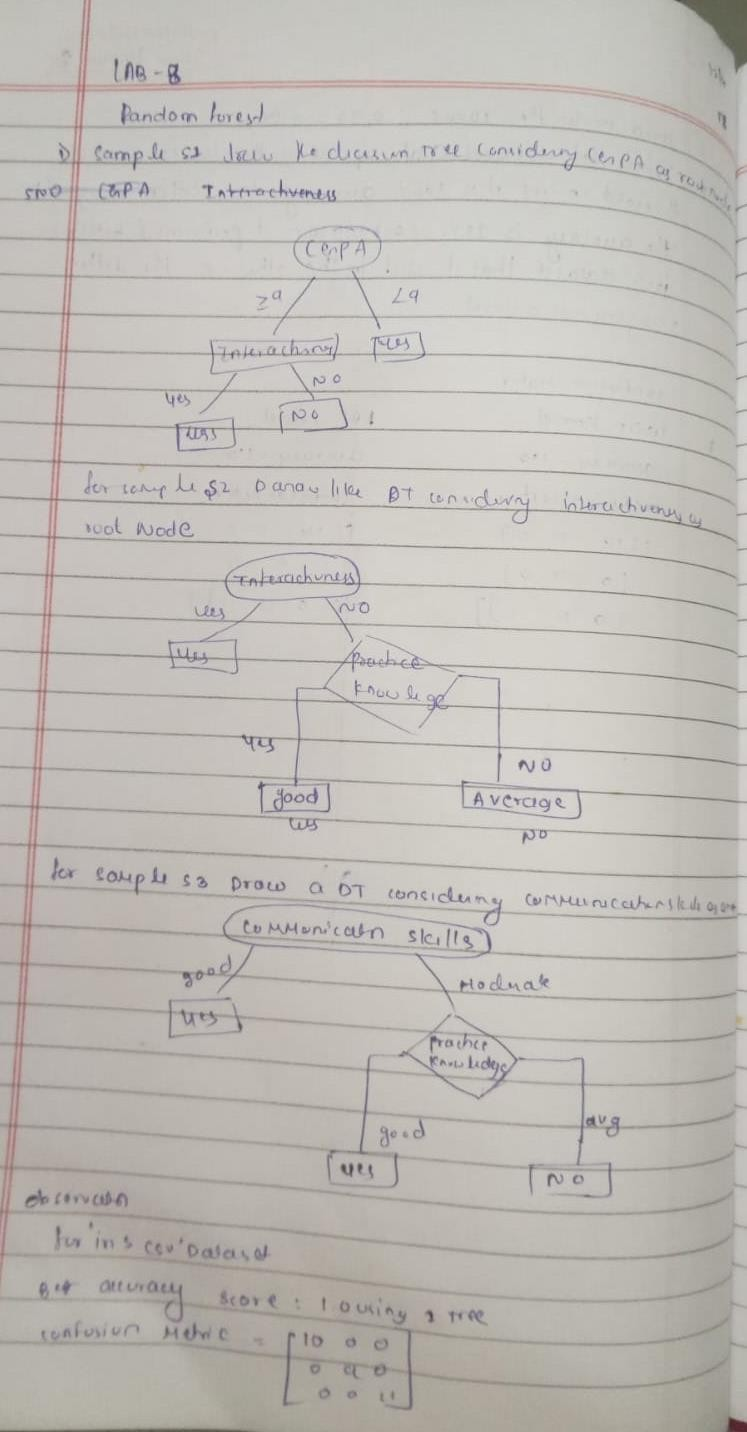 LAB - 8
Random forest
1) Sample s1 draw the decision tree considering CGPA as root node
SNO CGPA Interactiveness
CGPA
≥9 <9
Interactiveness Yes
Yes NO
Yes NO
for sample s2 Draw like DT considering interactiveness as
root Node
Interactiveness
Yes NO
Yes practice
knowledge
Yes NO
good Average
Yes NO
for sample s3 Draw a DT considering communication skills as
Communicatn skills
good Moderate
Yes practice
knowledge
good avg
Yes NO
observation
for iris csv Dataset
Best accuracy score: 1.0 using tree
confusion Metric = 10 0 0
0 9 0
0 0 11